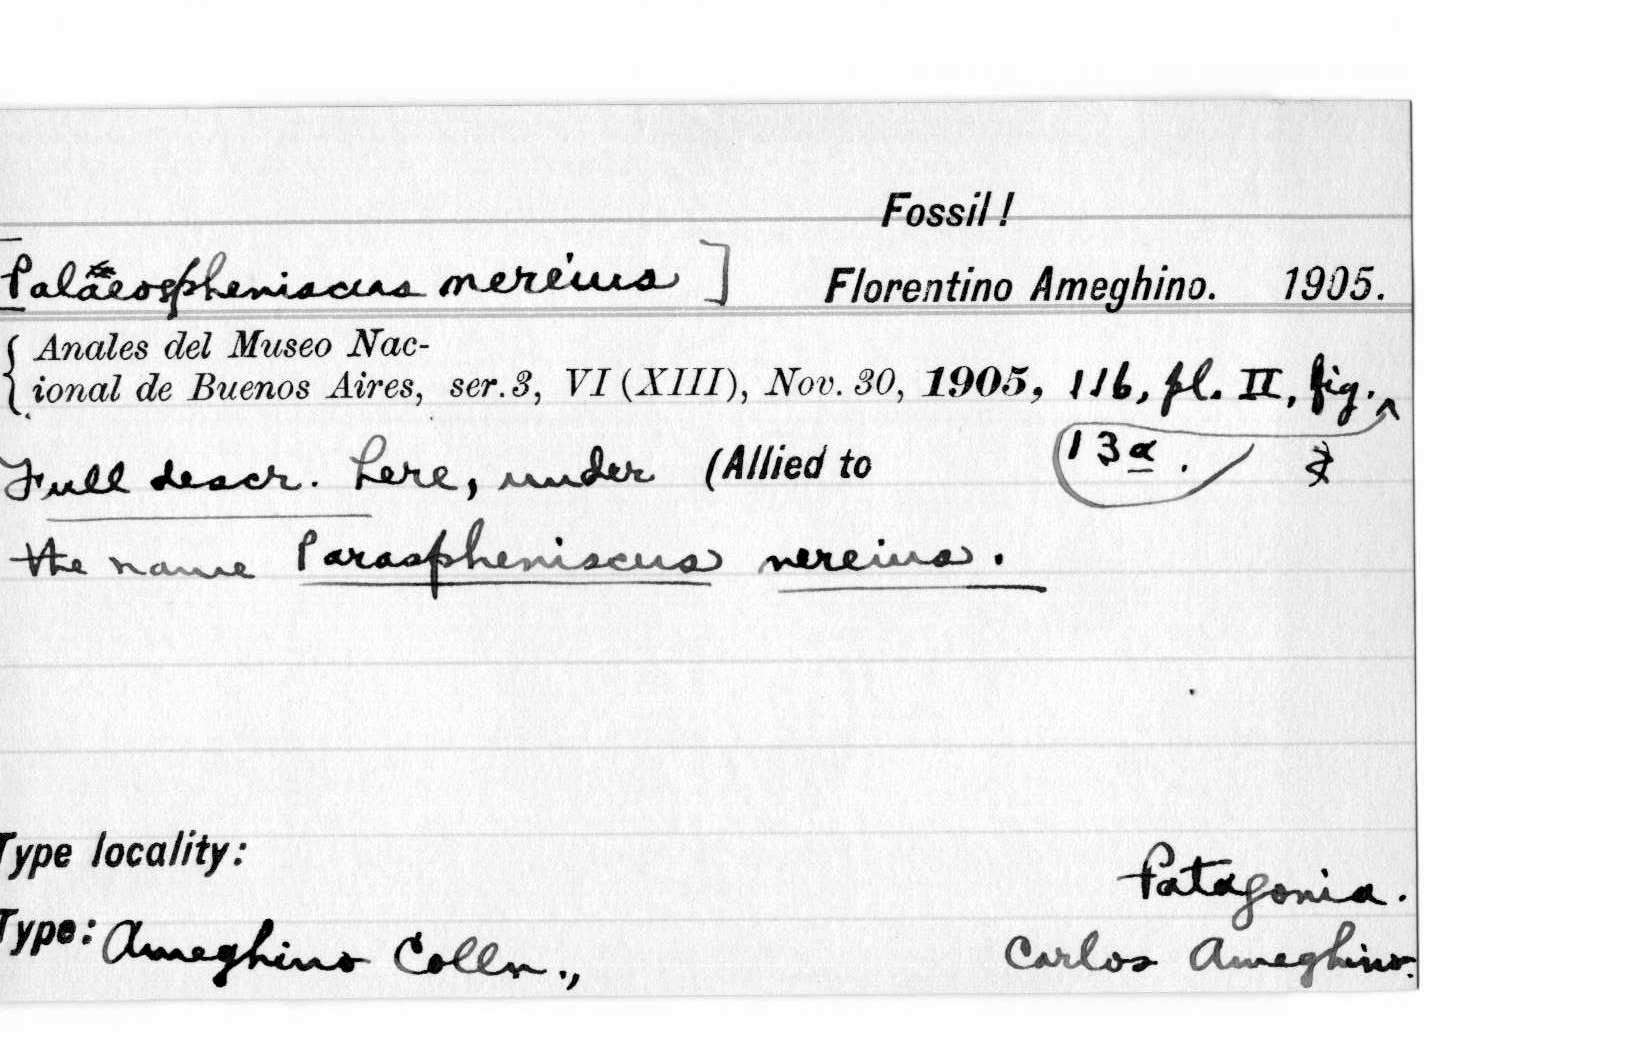 Fossil!
[Palaeospheniscus nereius] Florentino Ameghino. 1905.
{ Anales del Museo Nac-
ional de Buenos Aires, ser. 3, VI (XIII), Nov. 30, 1905, 116, pl. II, fig.
13a.
Full descr. here, under (Allied to
the name Paraspheniscus nereius.
Type locality:
Patagonia.
Type: Ameghino Colln., Carlos Ameghino.